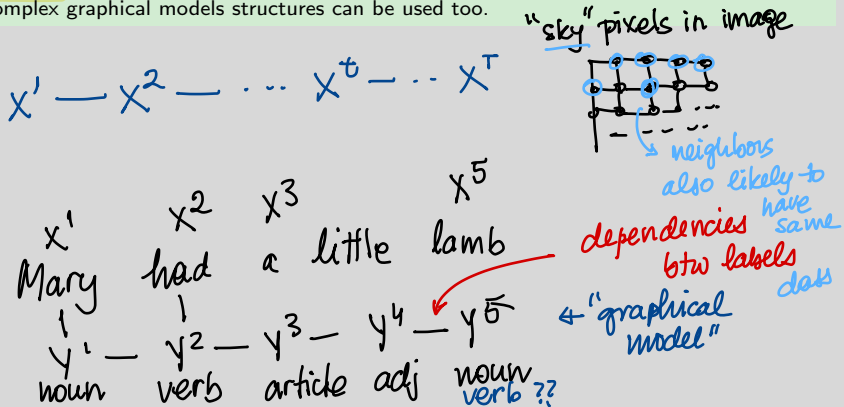 omplex graphical models structures can be used too.
"sky" pixels in image
x¹ — x² — ... xᵗ — .. xᵀ
neighbors
also likely to
have
same
class
x¹ x² x³ x⁵
Mary had a little lamb
dependencies
btw labels
y¹ — y² — y³ — y⁴ — y⁵
← "graphical
model"
noun verb article adj noun
verb ??